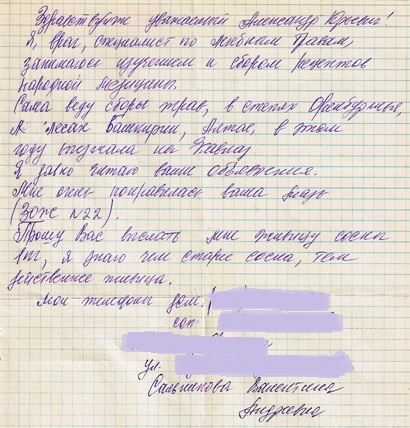 Здравствуйте уважаемый Александр Юрьевич!
Я, врач, специалист по лечебным травам,
занимаюсь изучением и сбором рецептов
народной медицины.
Сама веду сборы трав, в степях Оренбуржья,
в лесах Башкирии, Алтае, в этом
году выезжала на Кавказ
Я давно читаю ваше объявление.
Мне очень понравилась ваша
(ЗОЖ N22).
Прошу Вас выслать мне живицу сосны
1 , я знаю чем старше сосна, тем
действеннее живица.
Мои телефоны дом.
сот
ул.
Сальникова Валентина
Андреевна